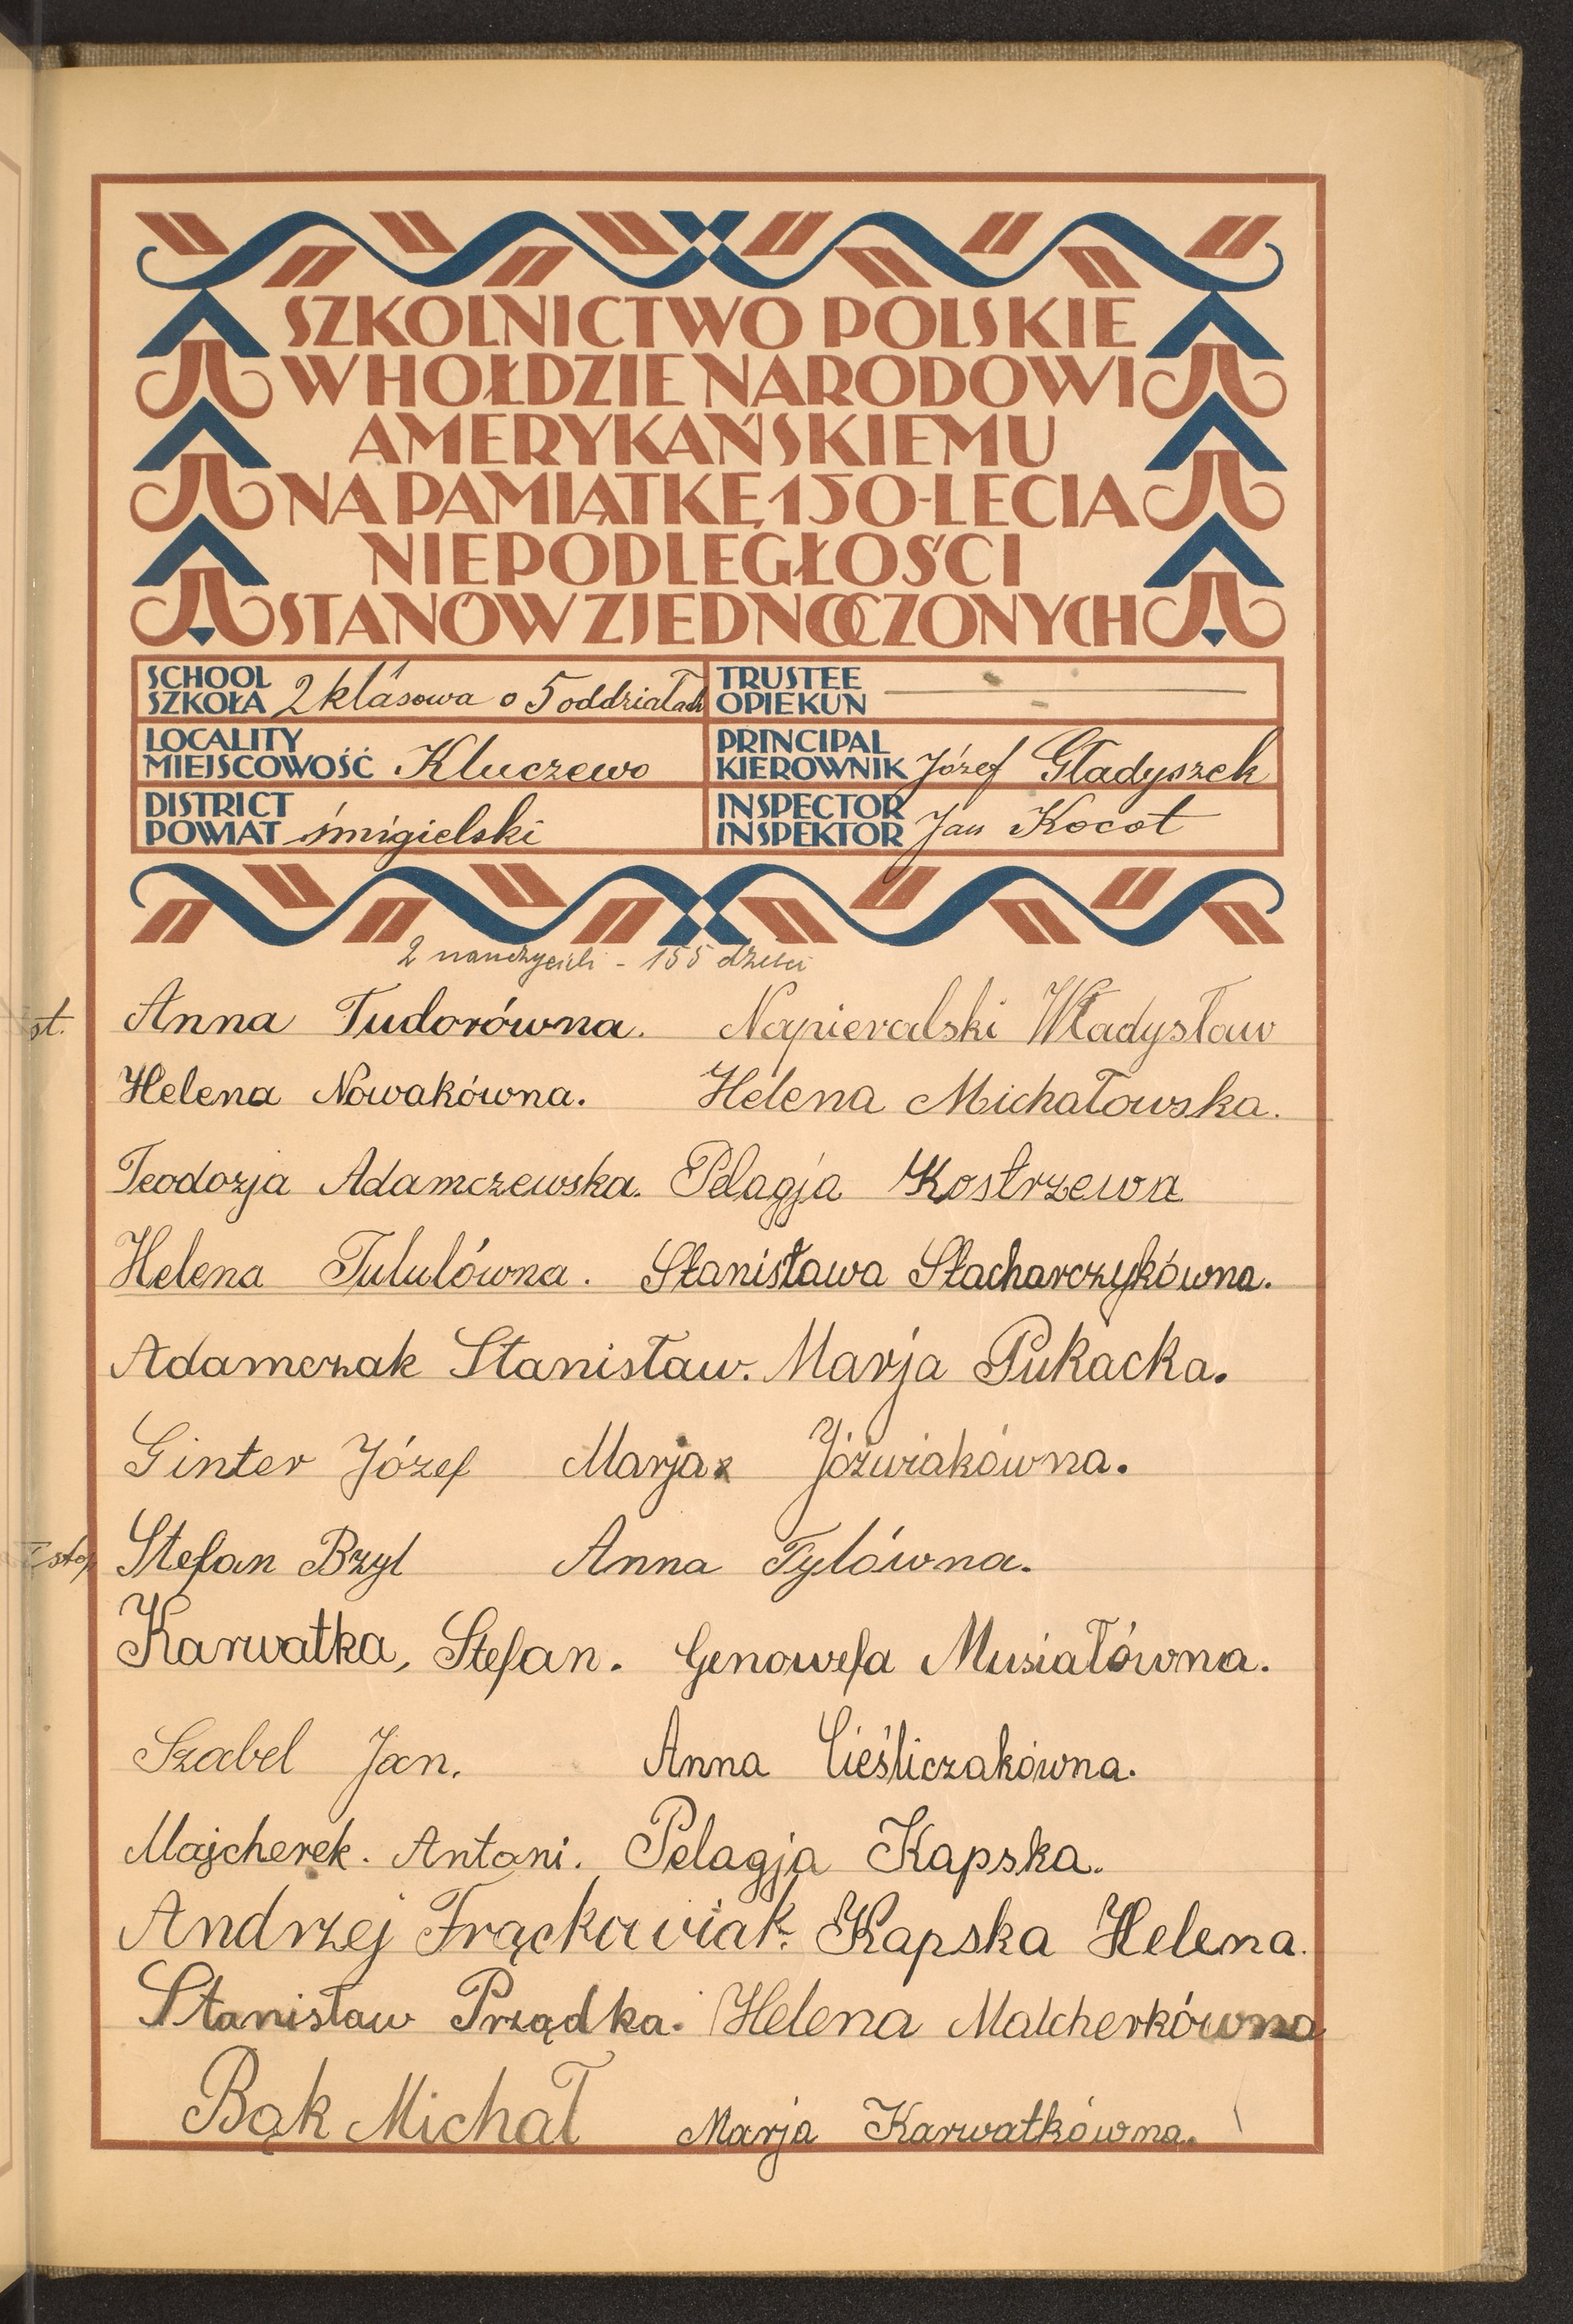 SZKOLNICTWO POLSKIE
W HOŁDZIE NARODOWI
AMERYKAŃSKIEMU
NA PAMIĄTKĘ 150-LECIA
NIEPODLEGŁOŚCI
STANÓW ZJEDNOCZONYCH
SCHOOL
SZKOŁA 2 klasowa o 5 oddziałach
TRUSTEE
OPIEKUN
LOCALITY
MIEJSCOWOŚĆ Kluczewo
PRINCIPAL
KIEROWNIK Józef Gładyszek
DISTRICT
POWIAT śmigielski
INSPECTOR
INSPEKTOR Jan Kocot
2 nauczycieli - 155 dzieci
st. Anna Tudorówna. Napieralski Władysław
Helena Nowakówna. Helena Michałowska.
Teodozja Adamczewska. Pelagja Kostrzewa
Helena Tululówna. Stanisława Stacharczykówna.
Adamczak Stanisław. Marja Pukacka.
Ginter Józef Marja Jóźwiakówna.
Stefan Bzyl Anna Tylówna.
Karwatka, Stefan. Genowefa Musiałówna.
Szabel Jan. Anna Cieśliczakówna.
Majcherek. Antoni. Pelagja Kapska.
Andrzej Frąckowiak. Kapska Helena.
Stanisław Prządka. Helena Malcherkówna
Bąk Michał Marja Karwatkówna.